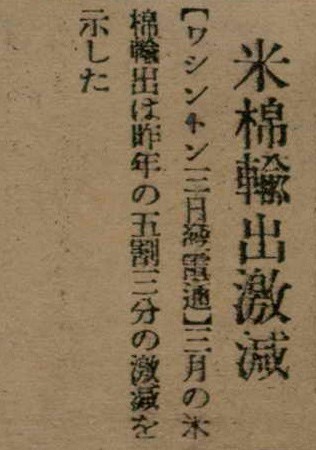 米棉輸出激減
【ワシントン三日発電通】三月の米
棉輸出は昨年の五割三分の激減を
示した